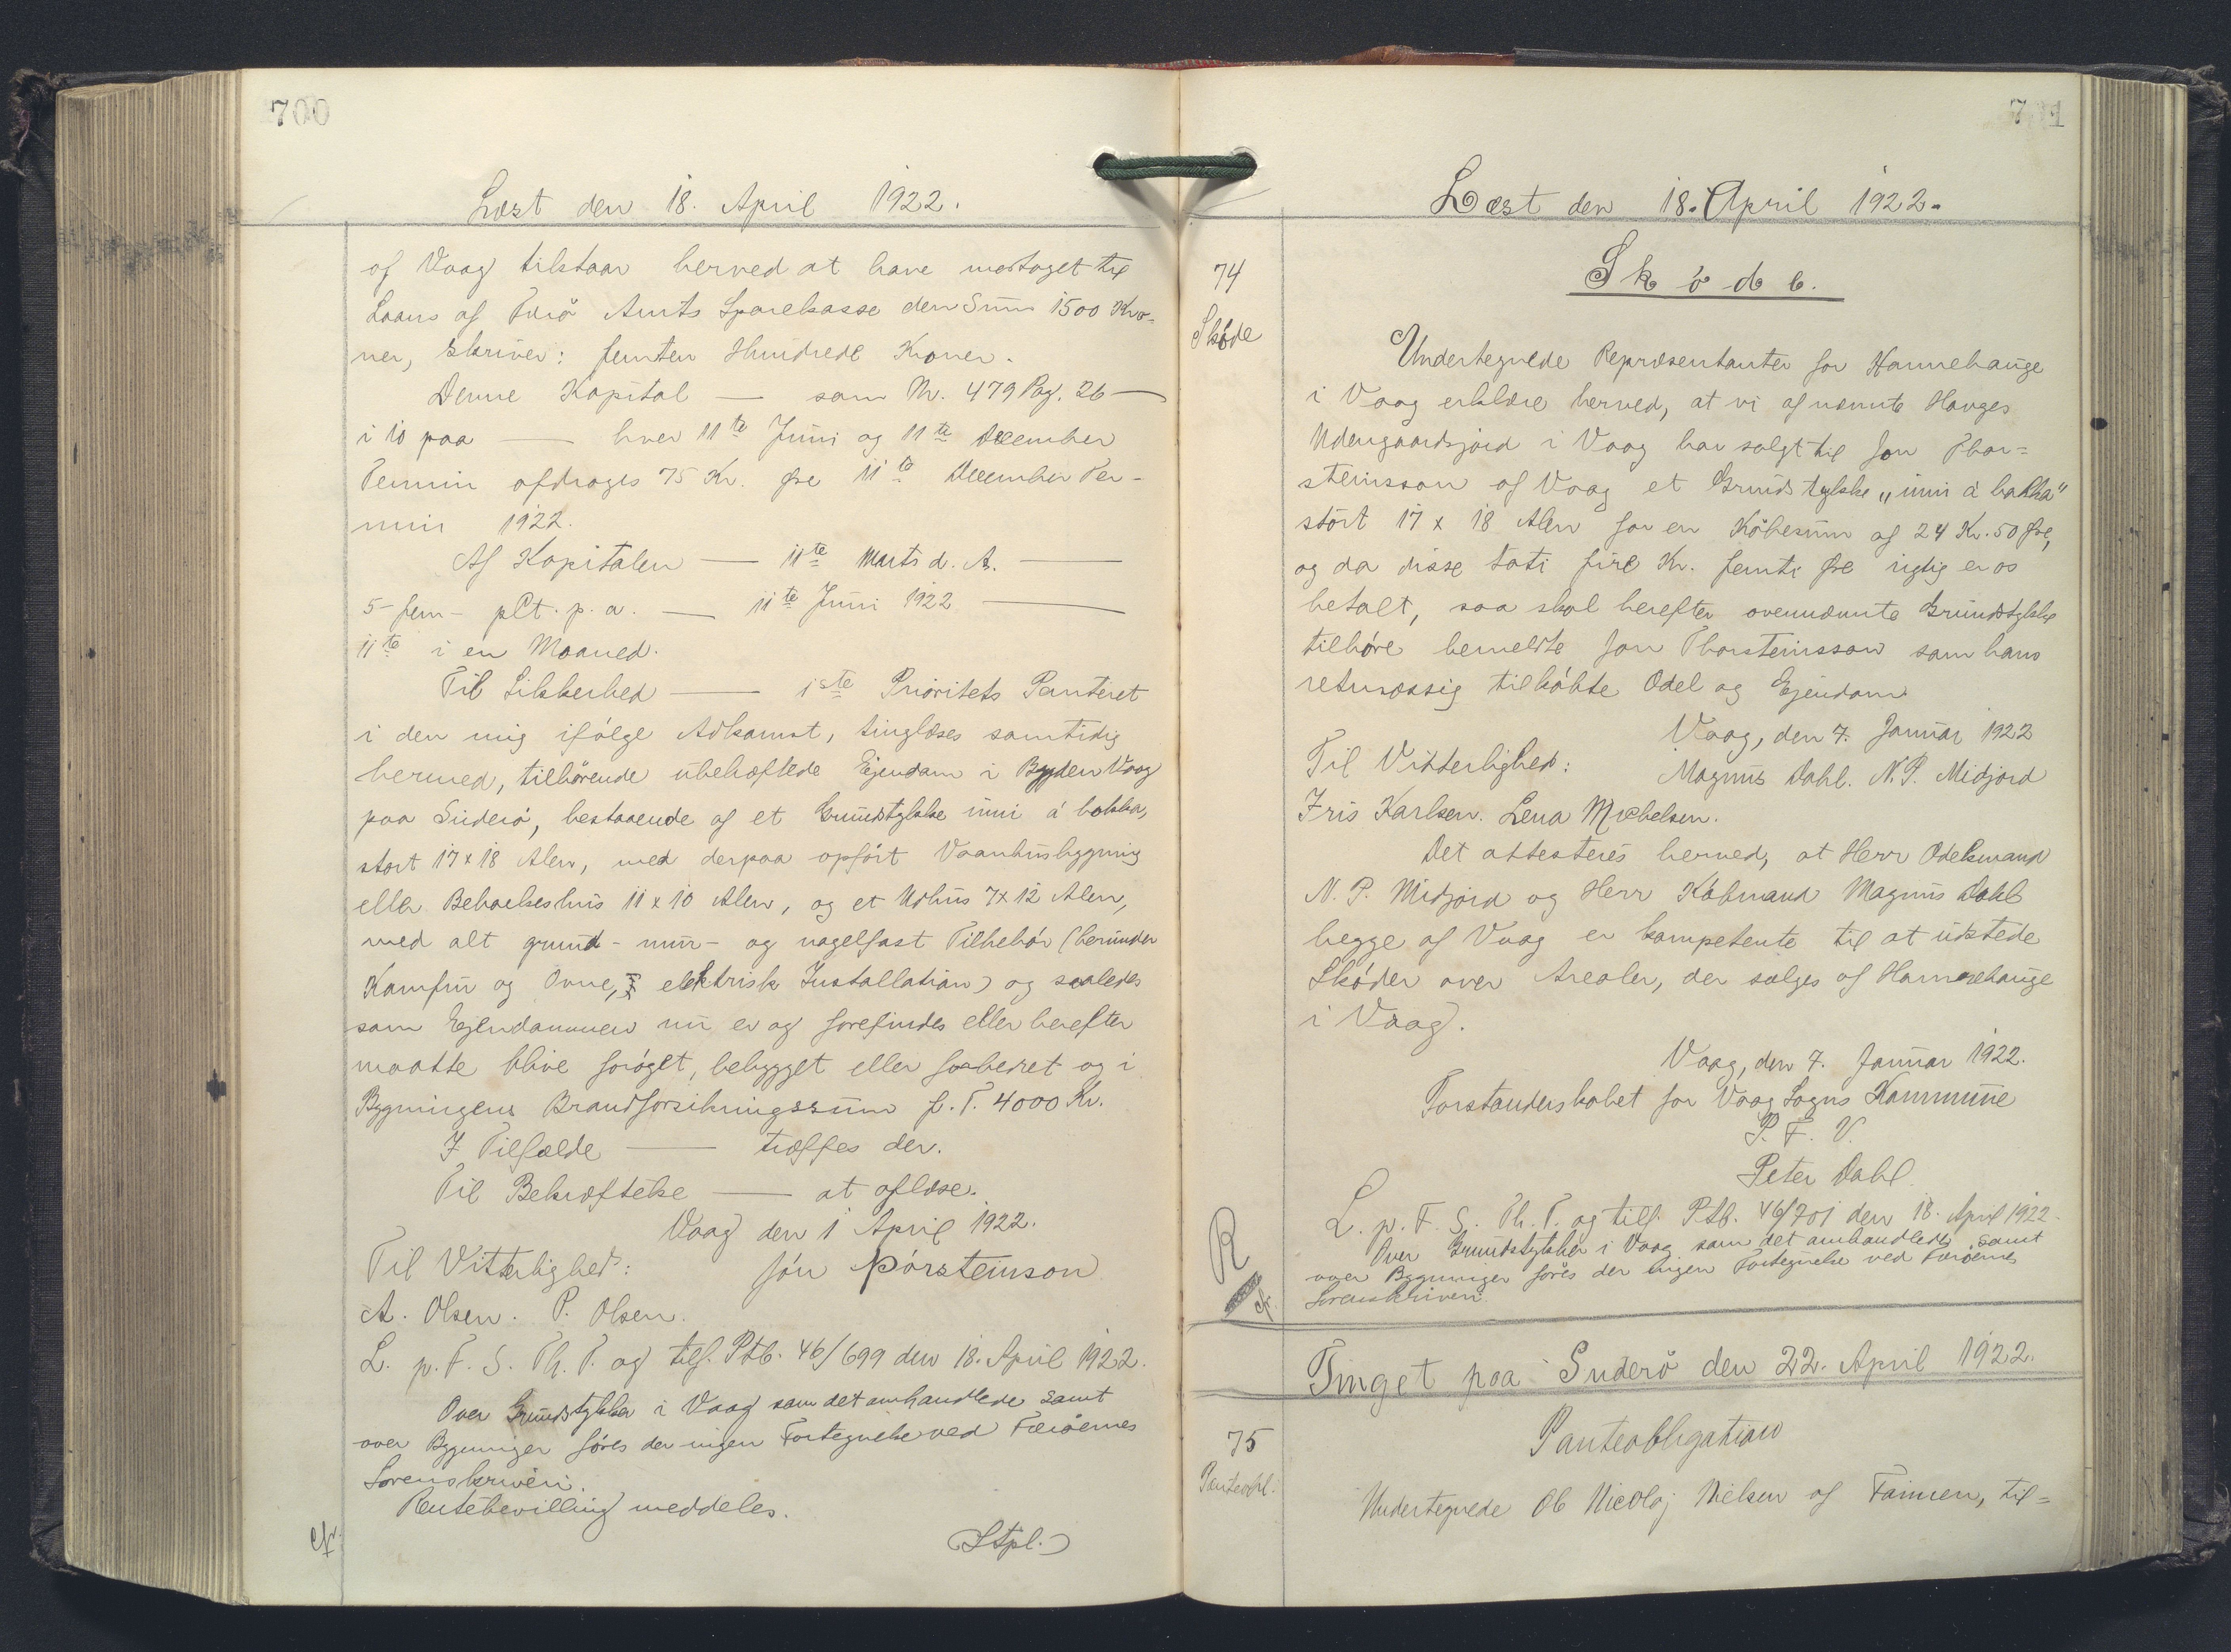 700
Læst den 18. April 1922.
af Vaag tilstaar herved at have modtaget til
Laans af Færø Amts Sparekasse den Sum 1500 Kro-
ner, skriver: femten Hundrede Kroner.
Denne Kapital — som Nr. 479 Pag. 26 —
i 10 paa — hver 11te Juni og 11te December
Termin afdrages 75 Kr. før 11te December Ter-
min 1922.
Af Kapitalen — 11te Marts d. A. —
5 - fem - pCt. p. a. — 11te Juni 1922 —
11te i en Maaned.
Til Sikkerhed — 1ste Prioritets Panteret
i den mig ifølge Adkomst, tinglæses samtidig
hermed, tilhørende ubehæftede Ejendom i Bygden Vaag
paa Suderø, bestaaende af et Grundstykke inni á bakka,
stort 17 x 18 Alen, med derpaa opført Vaanhusbygning
eller Beboelseshus 11 x 10 Alen, og et Udhus 7 x 12 Alen,
med alt grund- mur- og nagelfast Tilbehør (herunder
Komfur og Ovne, elektrisk Installation) og saaledes
som Ejendommen nu er og forefindes eller herefter
maatte blive forøget, bebygget eller forbedret og i
Bygningens Brandforsikringssum p. T. 4000 Kr.
I Tilfælde — træffes der.
Til Bekræftelse — at aflæse.
Vaag den 1 April 1922.
Til Vitterlighed: Jón Þórsteinson
A. Olsen. P. Olsen.
L. p. F. S. Th. P. og tilf. Ptb. 46/699 den 18. April 1922.
Over Grundstykker i Vaag som det omhandlede samt
over Bygninger føres der ingen Fortegnelse ved Færøernes
Sorenskriveri.
Rentebevilling meddeles.
cfr. (Stpl.)
701
Læst den 18. April 1922.
Skøde.
74
Skøde
Undertegnede Repræsentanter for Hamrehauge
i Vaag erklære herved, at vi af nævnte Hauges
Udengaardsjord i Vaag har solgt til Jon Thor-
steinsson af Vaag et Grundstykke "inni á bakka"
stort 17 x 18 Alen for en Købesum af 24 Kr. 50 Øre,
og da disse toti fire Kr. femti Øre rigtig er os
betalt, saa skal herefter ovennævnte Grundstykke
tilhøre bemeldte Jon Thorsteinsson som hans
retmæssig tilkøbte Odel og Ejendom
Vaag, den 7. Januar 1922
Til Vitterlighed: Magnus Dahl. N. P. Midjord
Iris Karlsen. Lena Michelsen.
Det attesteres herved, at Herr Odelsmand
N. P. Midjord og Herr Købmand Magnus Dahl
begge af Vaag er kompetente til at udstede
Skøder over Arealer, der sælges af Hamrehauge
i Vaag.
Vaag, den 7. Januar 1922.
Forstanderskabet for Vaag Sogns Kommune
P. F. V.
Peter Dahl.
L. p. F. S. Th. P. og tilf. Ptb. 46/701 den 18. April 1922.
Over Grundstykker i Vaag som det omhandlede samt
over Bygninger føres der ingen Fortegnelse ved Færøernes
Sorenskriveri.
R
cfr.
Tinget paa Suderø den 22. April 1922.
Panteobligation
75
Panteobl.
Undertegnede Ob Nicolaj Nielsen af Famien, til-